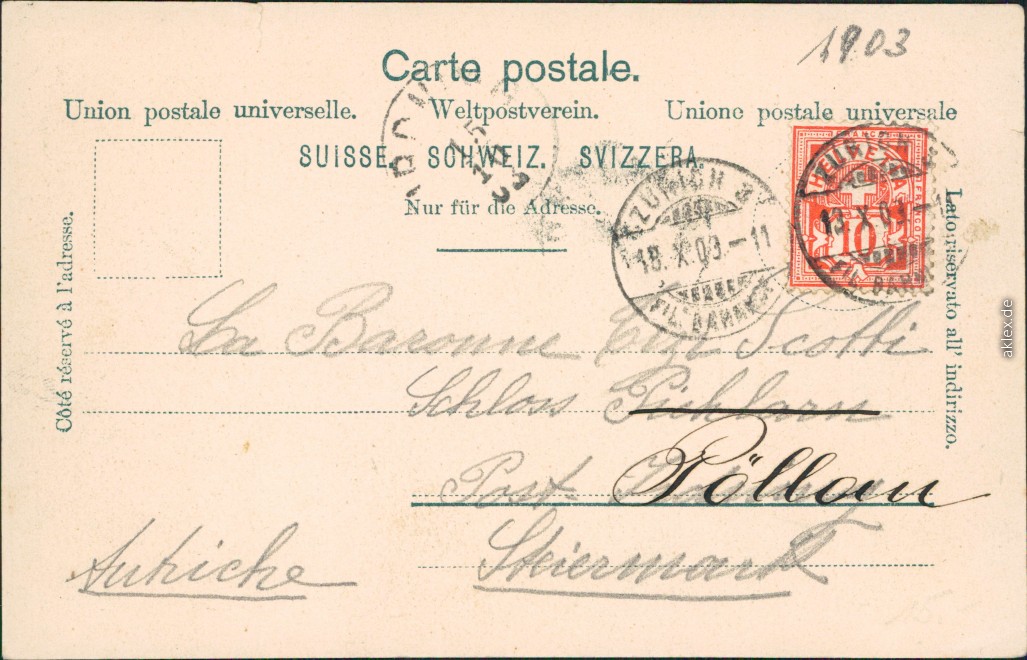 1903
Carte postale.
Union postale universelle. Weltpostverein. Unione postale universale
SUISSE. SCHWEIZ. SVIZZERA.
Nur für die Adresse.
Côté réservé à l'adresse.
Lato riservato all' indirizzo.
HELVETIA
10
ZÜRICH
18. X. 03. – 11
FIL. BAHNH
18. X. 03. –
FIL. BAHN
La Baronne Scotti
Schloss Pichlarn
Post Pöllau
Autriche Steiermark
aklex.de